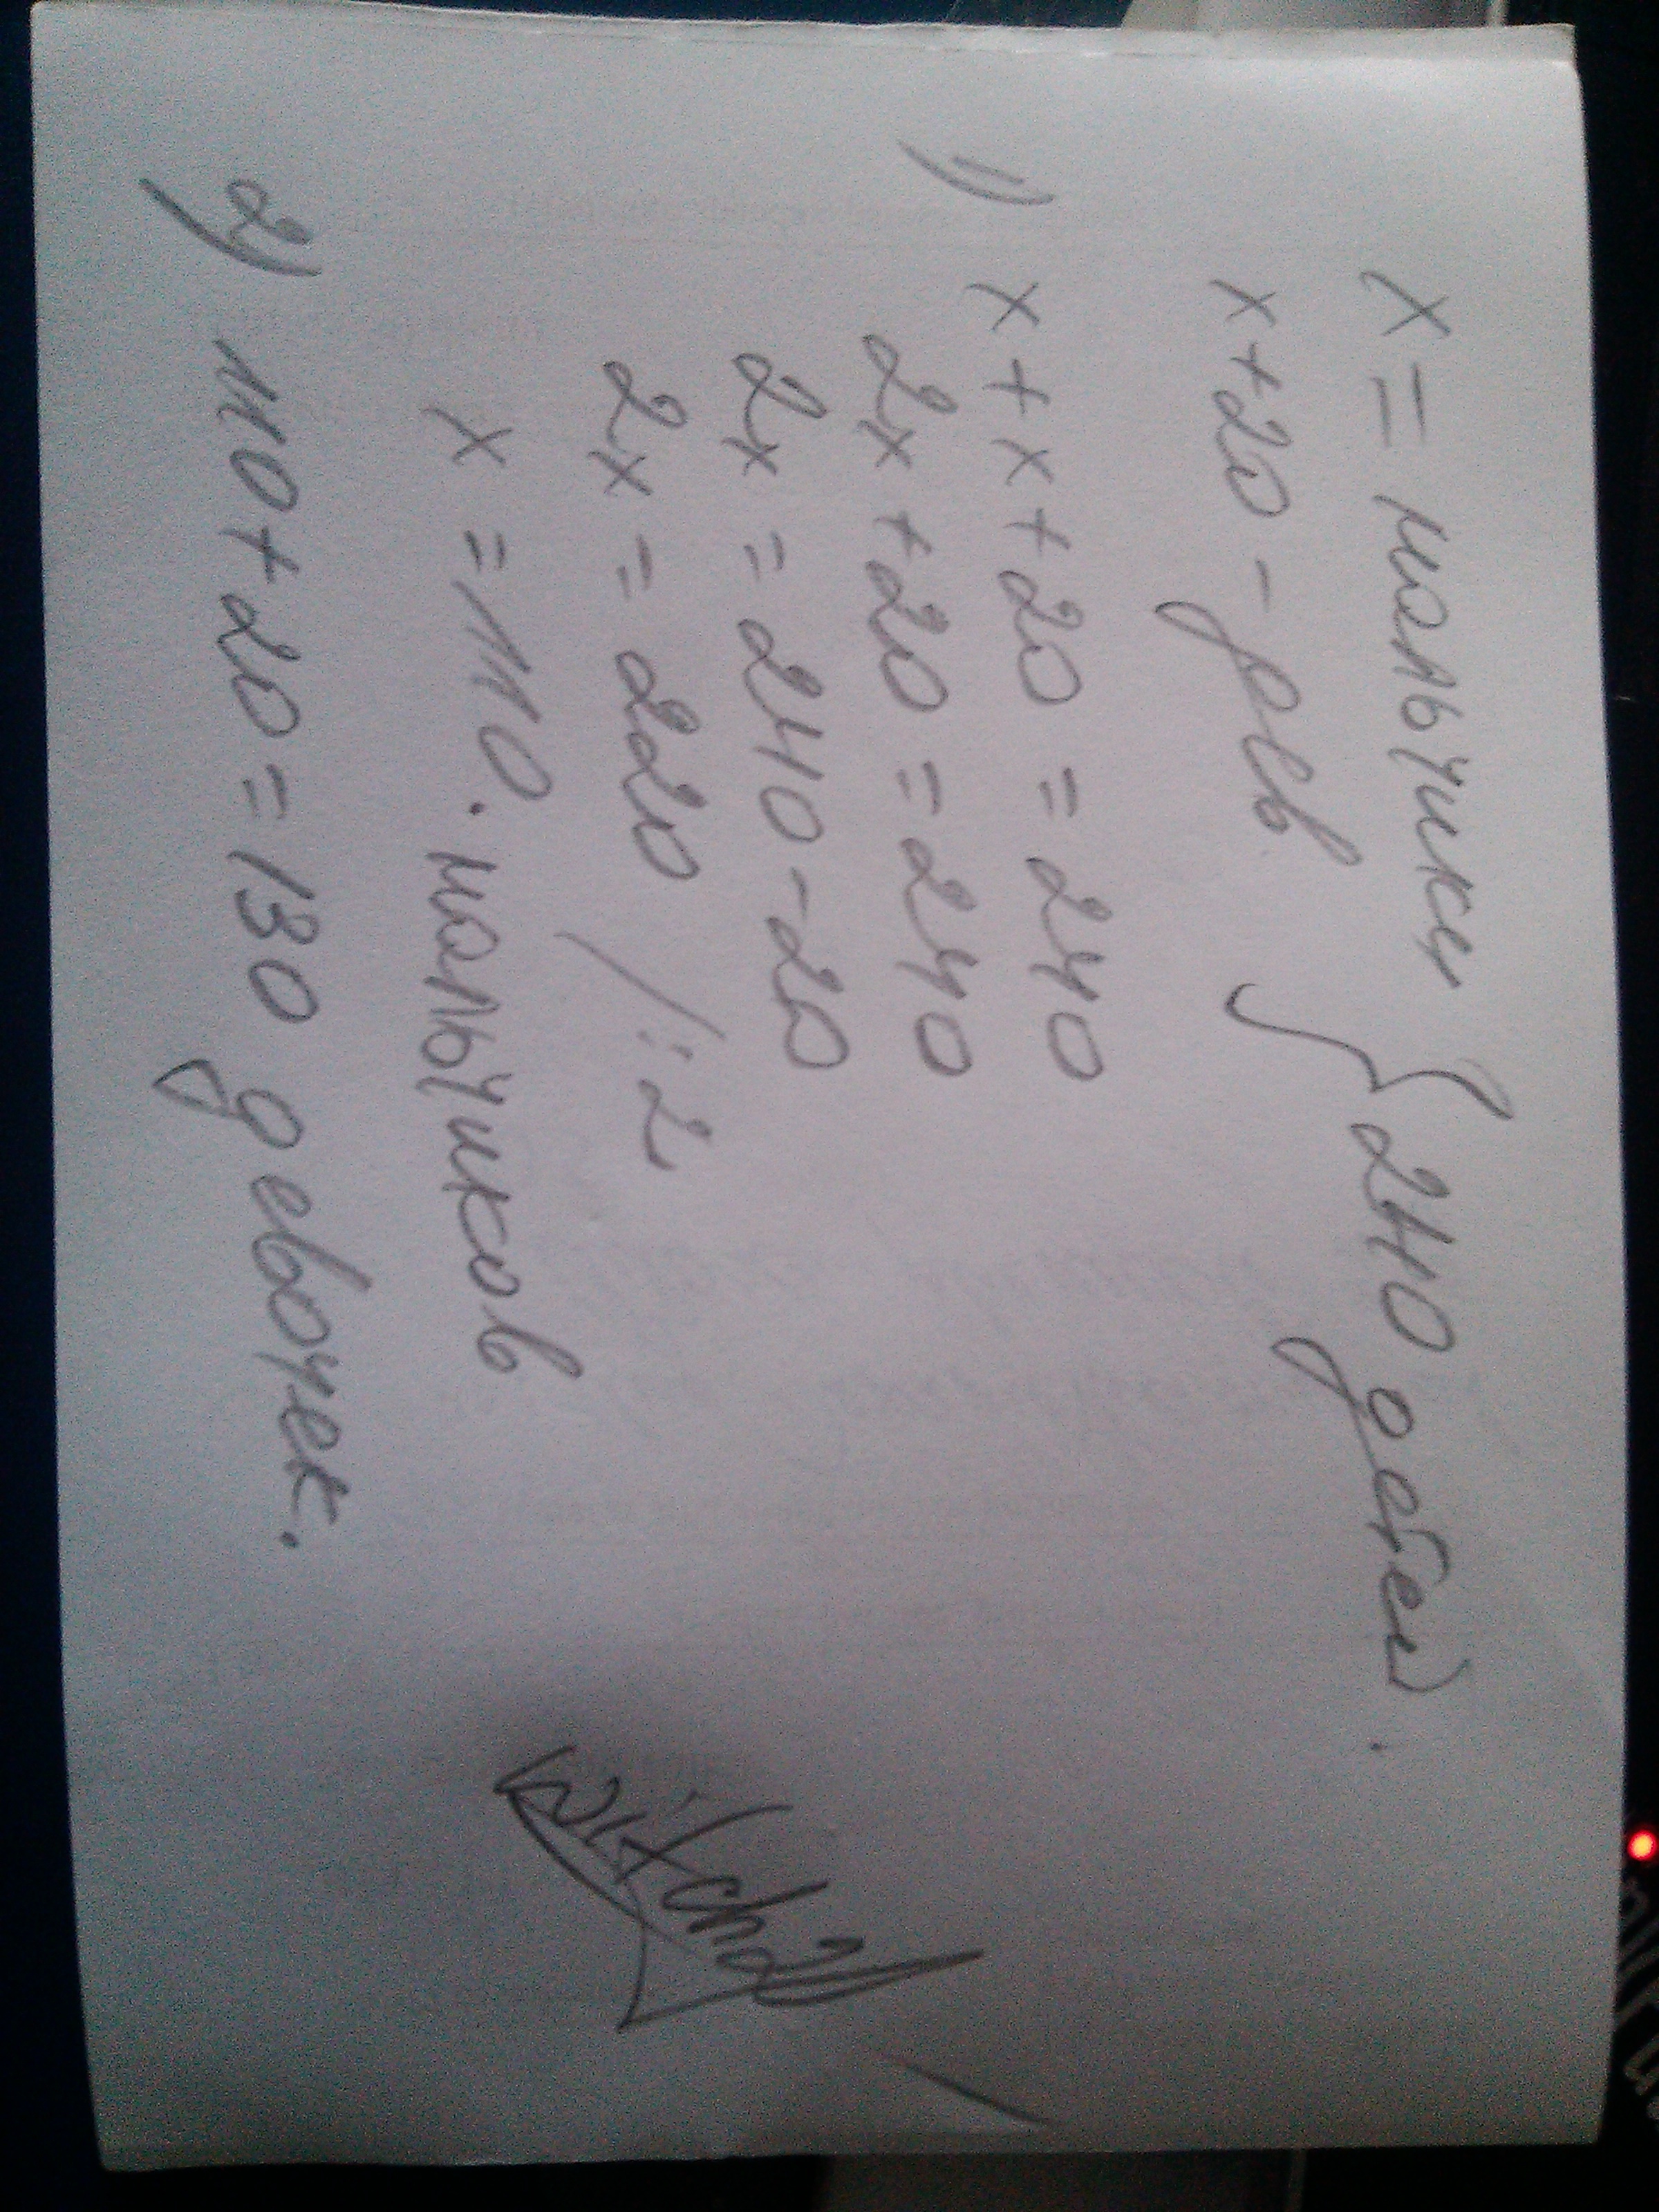 x = мальчики } 240 детей.
x + 20 - дев.
1) x + x + 20 = 240
2x + 20 = 240
2x = 240 - 20
2x = 220 /:2
x = 110. мальчиков
2) 110 + 20 = 130 девочек.